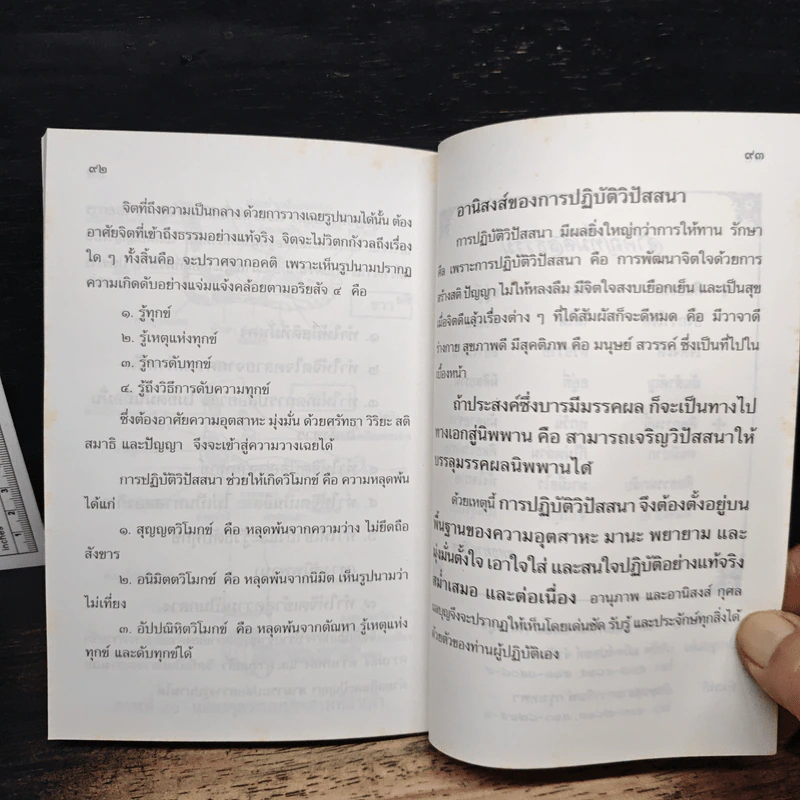 ๙๒
จิตที่ถึงความเป็นกลาง ด้วยการวางเฉยรูปนามได้นั้น ต้อง
อาศัยจิตที่เข้าถึงธรรมอย่างแท้จริง จิตจะไม่วิตกกังวลถึงเรื่อง
ใด ๆ ทั้งสิ้นคือ จะปราศจากอคติ เพราะเห็นรูปนามปรากฏ
ความเกิดดับอย่างแจ่มแจ้งคล้อยตามอริยสัจ ๔ คือ
๑. รู้ทุกข์
๒. รู้เหตุแห่งทุกข์
๓. รู้การดับทุกข์
๔. รู้ถึงวิธีการดับความทุกข์
ซึ่งต้องอาศัยความอุตสาหะ มุ่งมั่น ด้วยศรัทธา วิริยะ สติ
สมาธิ และปัญญา จึงจะเข้าสู่ความวางเฉยได้
การปฏิบัติวิปัสสนา ช่วยให้เกิดวิโมกข์ คือ ความหลุดพ้น
ได้แก่
๑. สุญญตวิโมกข์ คือ หลุดพ้นจากความว่าง ไม่ยึดถือ
สังขาร
๒. อนิมิตตวิโมกข์ คือ หลุดพ้นจากนิมิต เห็นรูปนามว่า
ไม่เที่ยง
๓. อัปปณิหิตวิโมกข์ คือ หลุดพ้นจากตัณหา รู้เหตุแห่ง
ทุกข์ และดับทุกข์ได้
๙๓
อานิสงส์ของการปฏิบัติวิปัสสนา
การปฏิบัติวิปัสสนา มีผลยิ่งใหญ่กว่าการให้ทาน รักษา
ศีล เพราะการปฏิบัติวิปัสสนา คือ การพัฒนาจิตใจด้วยการ
สร้างสติ ปัญญา ไม่ให้หลงลืม มีจิตใจสงบเยือกเย็น และเป็นสุข
เมื่อจิตดีแล้วเรื่องต่าง ๆ ที่ได้สัมผัสก็จะดีหมด คือ มีวาจาดี
ร่างกาย สุขภาพดี มีสุคติภพ คือ มนุษย์ สวรรค์ ซึ่งเป็นที่ไปใน
เบื้องหน้า
ถ้าประสงค์ซึ่งบารมีมรรคผล ก็จะเป็นทางไป
ทางเอกสู่นิพพาน คือ สามารถเจริญวิปัสสนาให้
บรรลุมรรคผลนิพพานได้
ด้วยเหตุนี้ การปฏิบัติวิปัสสนา จึงต้องตั้งอยู่บน
พื้นฐานของความอุตสาหะ มานะ พยายาม และ
มุ่งมั่นตั้งใจ เอาใจใส่ และสนใจปฏิบัติอย่างแท้จริง
สม่ำเสมอ และต่อเนื่อง อานุภาพ และอานิสงส์ กุศล
ผลบุญจึงจะปรากฏให้เห็นโดยเด่นชัด รับรู้ และประจักษ์ทุกสิ่งได้
ด้วยตัวของท่านผู้ปฏิบัติเอง
inches 1 2 3